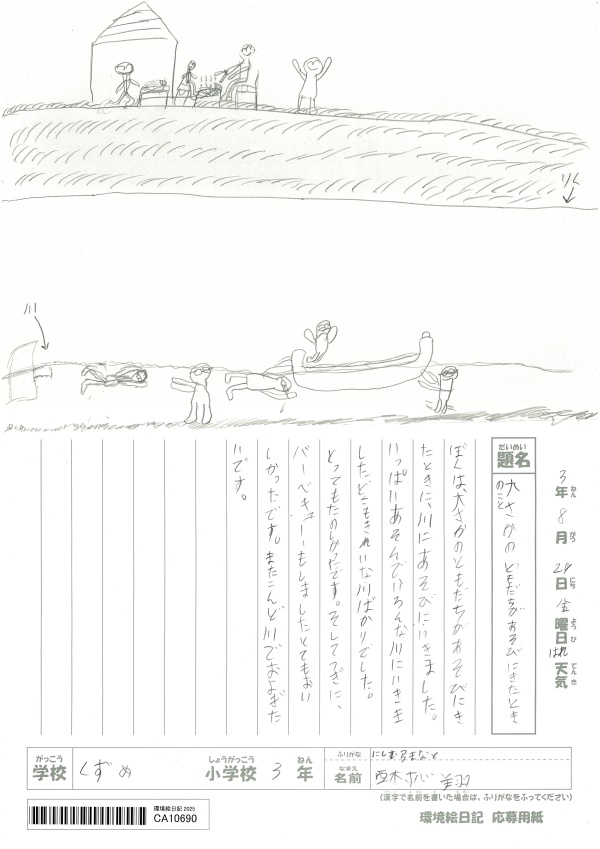 りく
川
3年 8月 24日 金曜日 はれ 天気
ねん がつ にち ようび てんき
だいめい
題名
大さかのともだちがあそびにきたとき
のこと
ぼくは、大さかのともだちがあそびにき
たときに、川にあそびにいきました。
いっぱいあそんでいろんな川にいきま
したどこもきれいな川ばかりでした。
とってもたのしかったです。そしてつぎに、
バーベキューもしましたとてもおい
しかったです。またこんど川でおよぎた
いです。
がっこう
学校
くずめ
しょうがっこう
小学校
3
ねん
年
ふりがな
なまえ
名前
西村
(漢字で名前を書いた場合は、ふりがなをふってください)
環境絵日記 2025
CA10690
環境絵日記 応募用紙